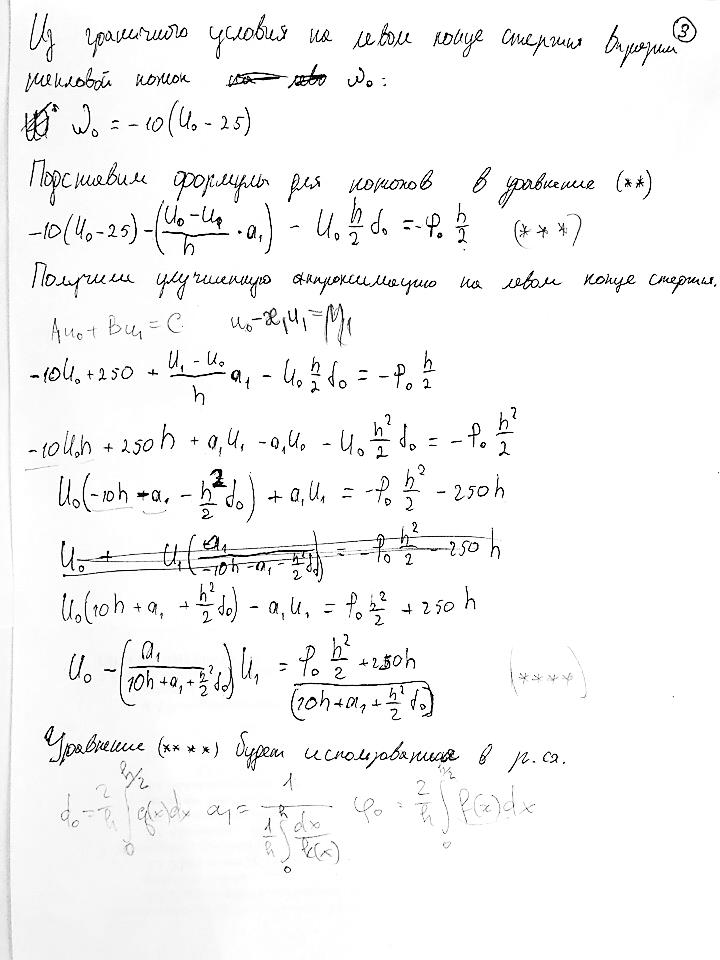 ③
Из граничного условия на левом конце стержня выразим
тепловой поток ω₀:
ω₀ = -10(U₀ - 25)
Подставим формулы для потоков в уравнение (**)
-10(U₀-25) - ((U₀ - U₁)/h · a₁) - U₀ h/2 d₀ = -φ₀ h/2 (***)
Получим улучшенную аппроксимацию на левом конце стержня.
Au₀ + Bu₁ = C u₀ - ϰ₁u₁ = μ₁
-10U₀ + 250 + (U₁ - U₀)/h a₁ - U₀ h/2 d₀ = -φ₀ h/2
-10U₀h + 250h + a₁U₁ - a₁U₀ - U₀ h²/2 d₀ = -φ₀ h²/2
U₀(-10h - a₁ - h²/2 d₀) + a₁U₁ = -φ₀ h²/2 - 250h
U₀ + U₁(a₁/(-10h - a₁ - h²/2 d₀)) = -φ₀ h²/2 - 250h
U₀(10h + a₁ + h²/2 d₀) - a₁U₁ = φ₀ h²/2 + 250h
U₀ - (a₁/(10h + a₁ + h²/2 d₀)) U₁ = (φ₀ h²/2 + 250h)/(10h + a₁ + h²/2 d₀) (****)
Уравнение (****) будет использоваться в р.сх.
d₀ = 2/h ∫₀^(h/2) q(x)dx a₁ = 1/(1/h ∫₀^h dx/k(x)) φ₀ = 2/h ∫₀^(h/2) f(x)dx